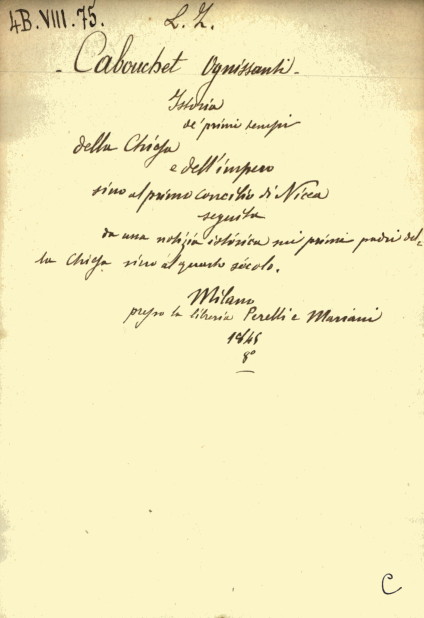 4B.VIII.75.
L. Z.
- Cabouchet Ognissanti -
Istoria
de' primi tempi
della Chiesa
e dell'impero
sino al primo concilio di Nicea
seguita
da una notizia istorica sui primi padri del-
la Chiesa sino al quarto secolo.
Milano
presso la libreria Perelli e Mariani
8°
C